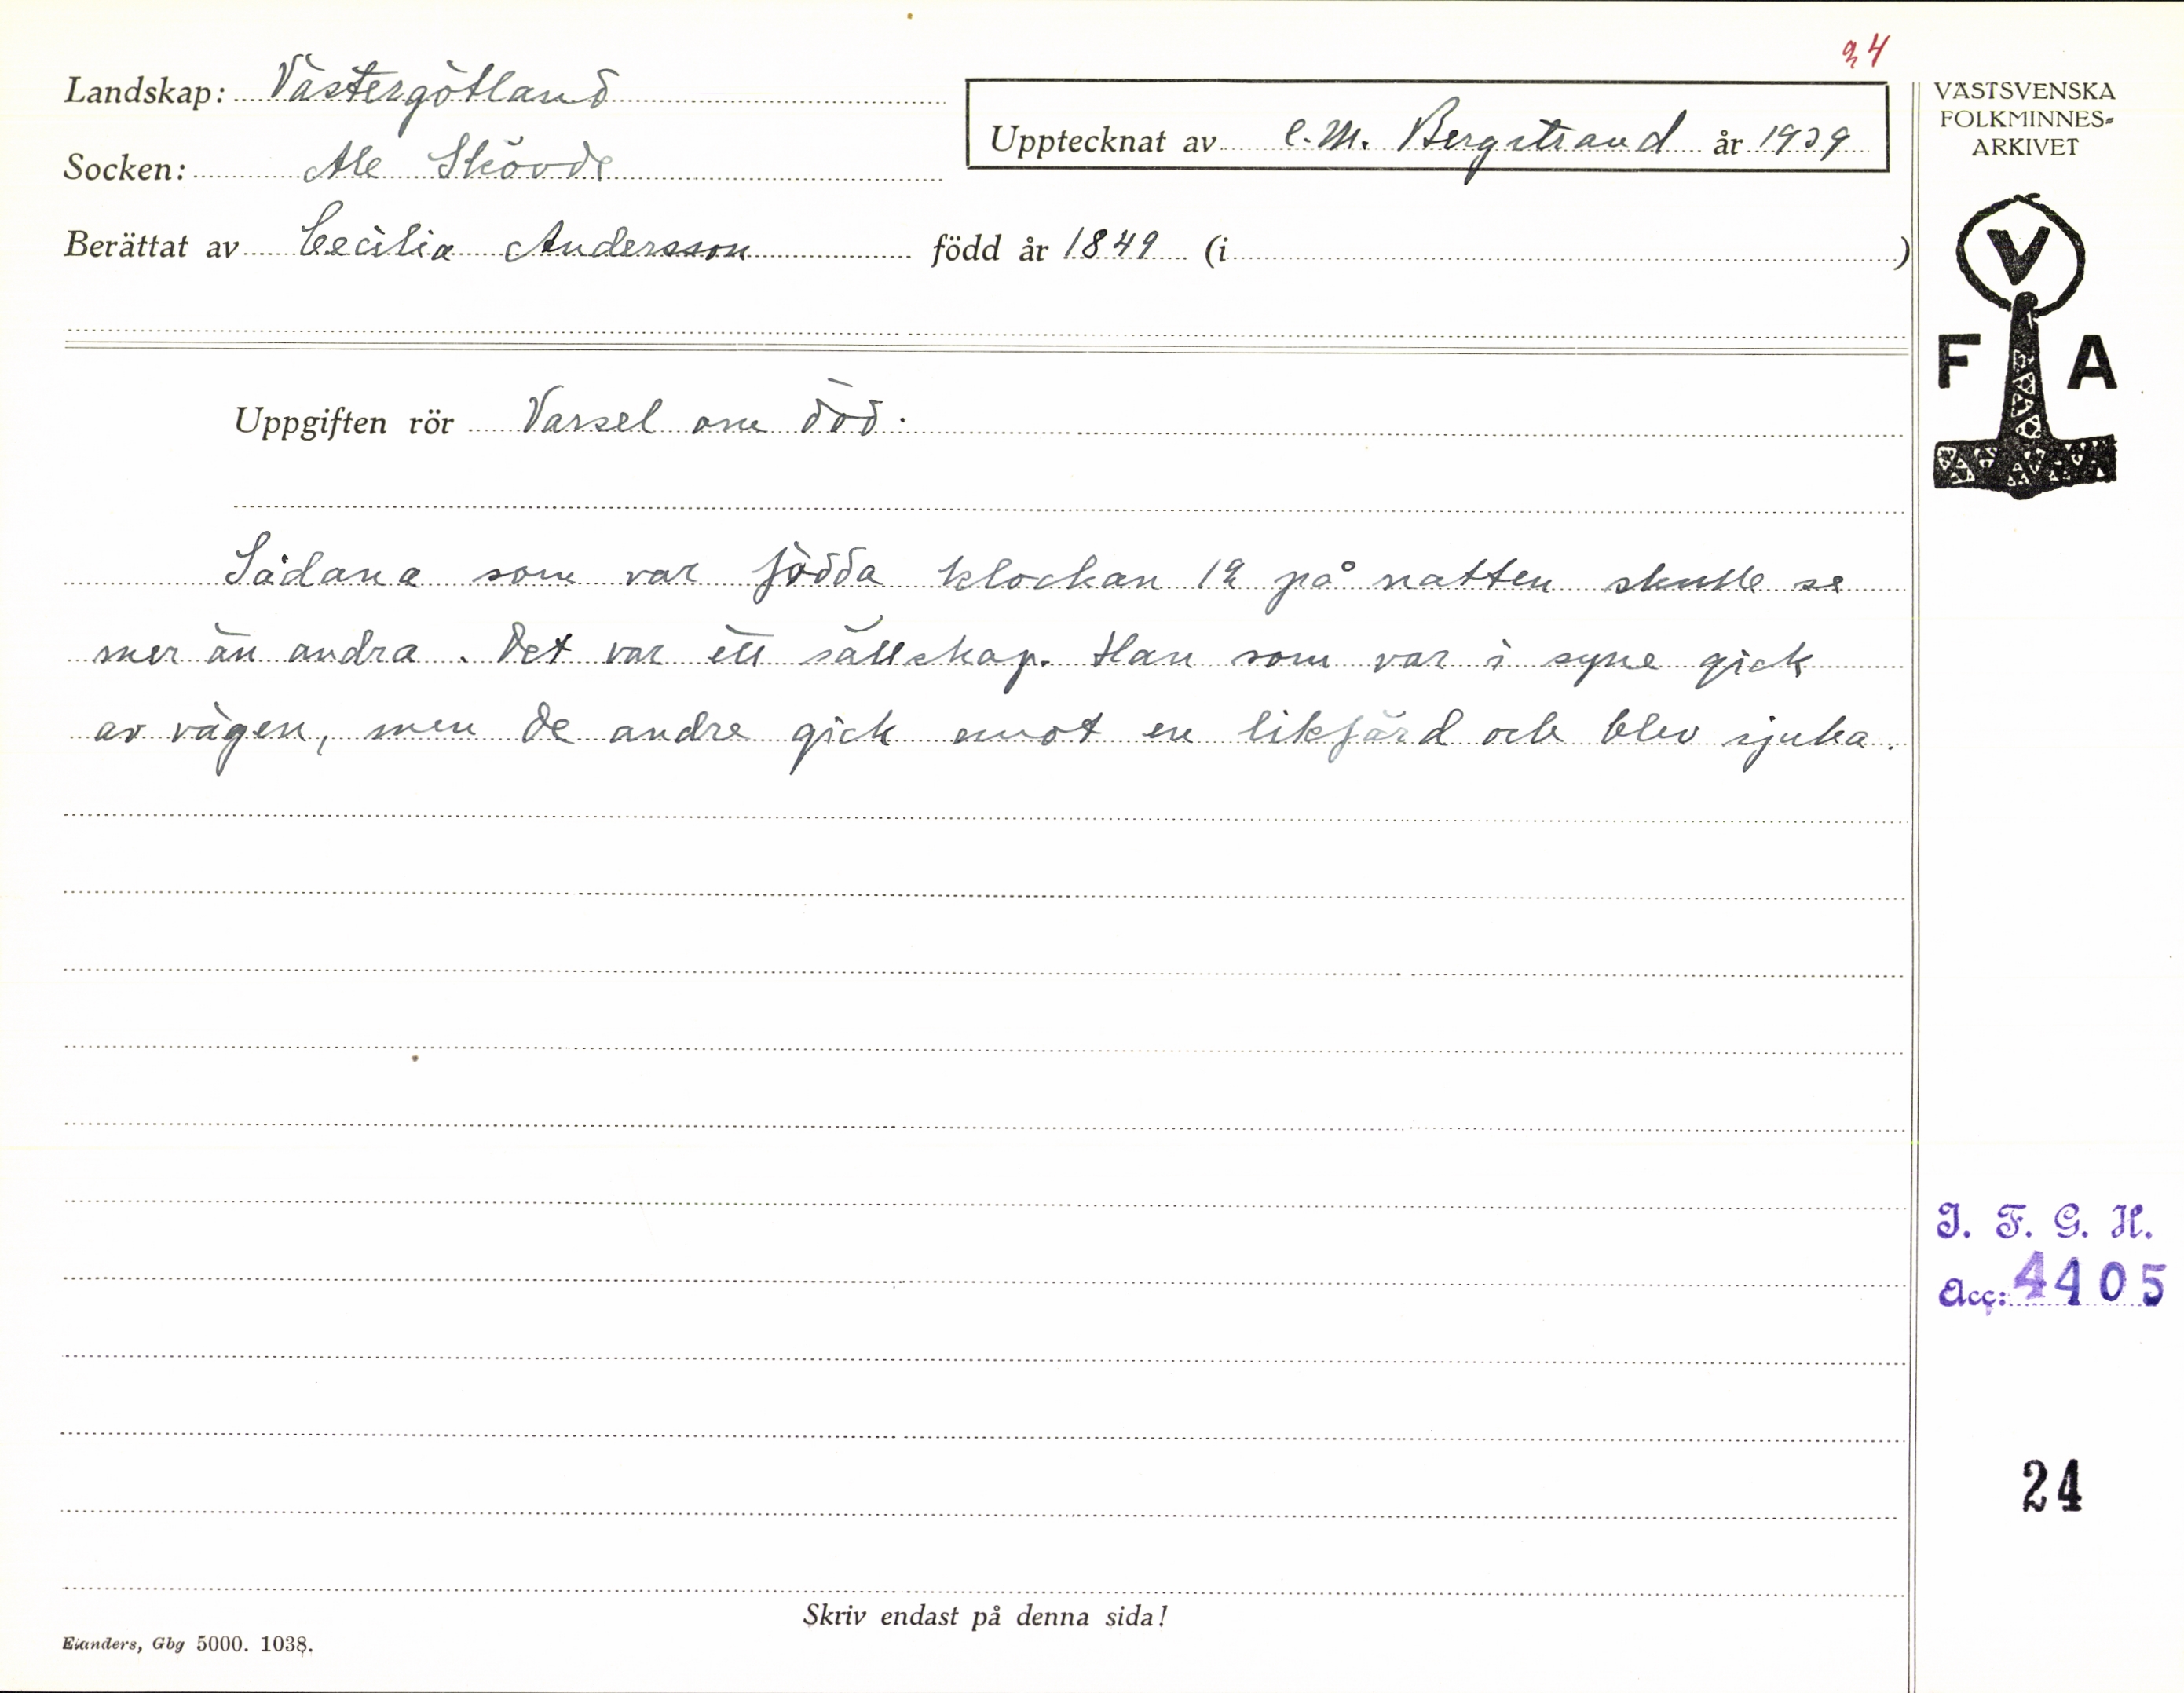 24
Landskap: Västergötland
Upptecknat av C. M. Bergstrand år 1939
Socken: Ale Skövde
Berättat av Cecilia Andersson född år 1849 (i )
Uppgiften rör Varsel om död.
Sådana som var födda klockan 12 på natten skulle se
mer än andra. Det var ett sällskap. Han som var i syne gick
av vägen, men de andre gick emot en likfärd och blev sjuka.
Skriv endast på denna sida!
Elanders, Gbg 5000. 1038.
VÄSTSVENSKA
FOLKMINNES-
ARKIVET
V
F A
I. F. G. H.
Acc: 4405
24